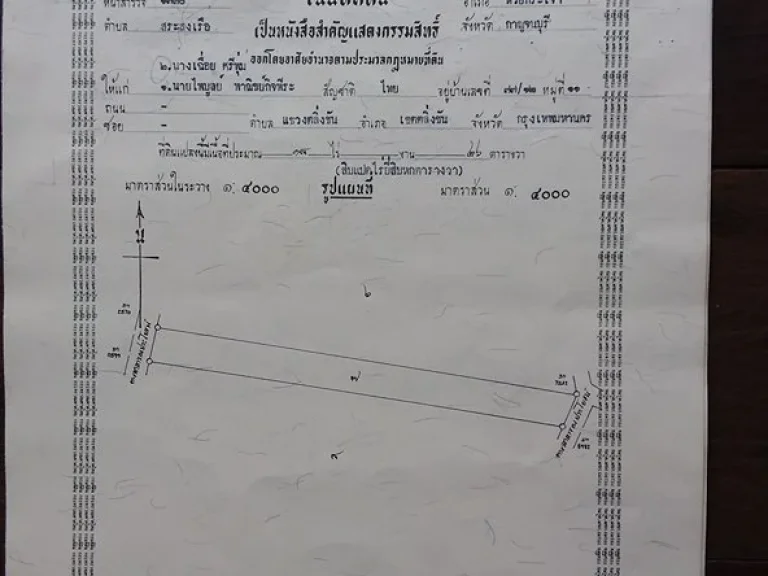 ตำบล สระลงเรือ เป็นหนังสือสำคัญแสดงกรรมสิทธิ์ จังหวัด กาญจนบุรี
ออกโดยอาศัยอำนาจตามประมวลกฎหมายที่ดิน
๒.นางเฉื่อย ศรีชุ่ม
ให้แก่ ๑.นายไพบูลย์ พาณิชย์กิจพีระ สัญชาติ ไทย อยู่บ้านเลขที่ ๗๗/๑๒ หมู่ที่ ๑๑
ถนน -
ซอย - ตำบล แขวงตลิ่งชัน อำเภอ เขตตลิ่งชัน จังหวัด กรุงเทพมหานคร
ที่ดินแปลงนี้มีเนื้อที่ประมาณ ๑๘ ไร่ - งาน ๒๖ ตารางวา
(สิบแปดไร่ยี่สิบหกตารางวา)
มาตราส่วนในระวาง ๑: ๔๐๐๐ รูปแผนที่ มาตราส่วน ๑: ๔๐๐๐
น
๖
ทางสาธารณประโยชน์
ทางสาธารณประโยชน์